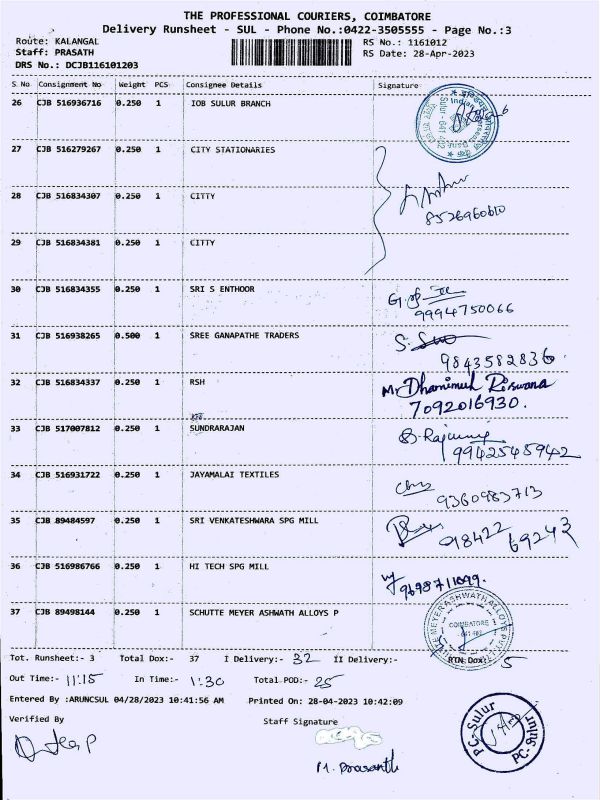 THE PROFESSIONAL COURIERS, COIMBATORE
Delivery Runsheet - SUL - Phone No.:0422-3505555 - Page No.:3
Route: KALANGAL RS No.: 1161012
Staff: PRASATH RS Date: 28-Apr-2023
DRS No.: DCJB116101203
S No Consignment No Weight PCS Consignee Details Signature
26 CJB 516936716 0.250 1 IOB SULUR BRANCH
Sulur - 641 402
27 CJB 516279267 0.250 1 CITY STATIONARIES
28 CJB 516834307 0.250 1 CITTY
8526960610
29 CJB 516834381 0.250 1 CITTY
30 CJB 516834355 0.250 1 SRI S ENTHOOR
9994750066
31 CJB 516938265 0.500 1 SREE GANAPATHE TRADERS
9843582836
32 CJB 516834337 0.250 1 RSH
7092016930.
33 CJB 517007812 0.250 1 SUNDRARAJAN
9942545942
34 CJB 516931722 0.250 1 JAYAMALAI TEXTILES
9360983713
35 CJB 89484597 0.250 1 SRI VENKATESHWARA SPG MILL
98422 69243
36 CJB 516986766 0.250 1 HI TECH SPG MILL
37 CJB 89498144 0.250 1 SCHUTTE MEYER ASHWATH ALLOYS P
COIMBATORE
641 402
Tot. Runsheet:- 3 Total Dox:- 37 I Delivery:- 32 II Delivery:- RTN. Dox:- 5
Out Time:- 11:15 In Time:- 1:30 Total POD:- 25
Entered By :ARUNCSUL 04/28/2023 10:41:56 AM Printed On: 28-04-2023 10:42:09
Verified By Staff Signature
PC-Sulur
PC-Sulur
M. Prasanth